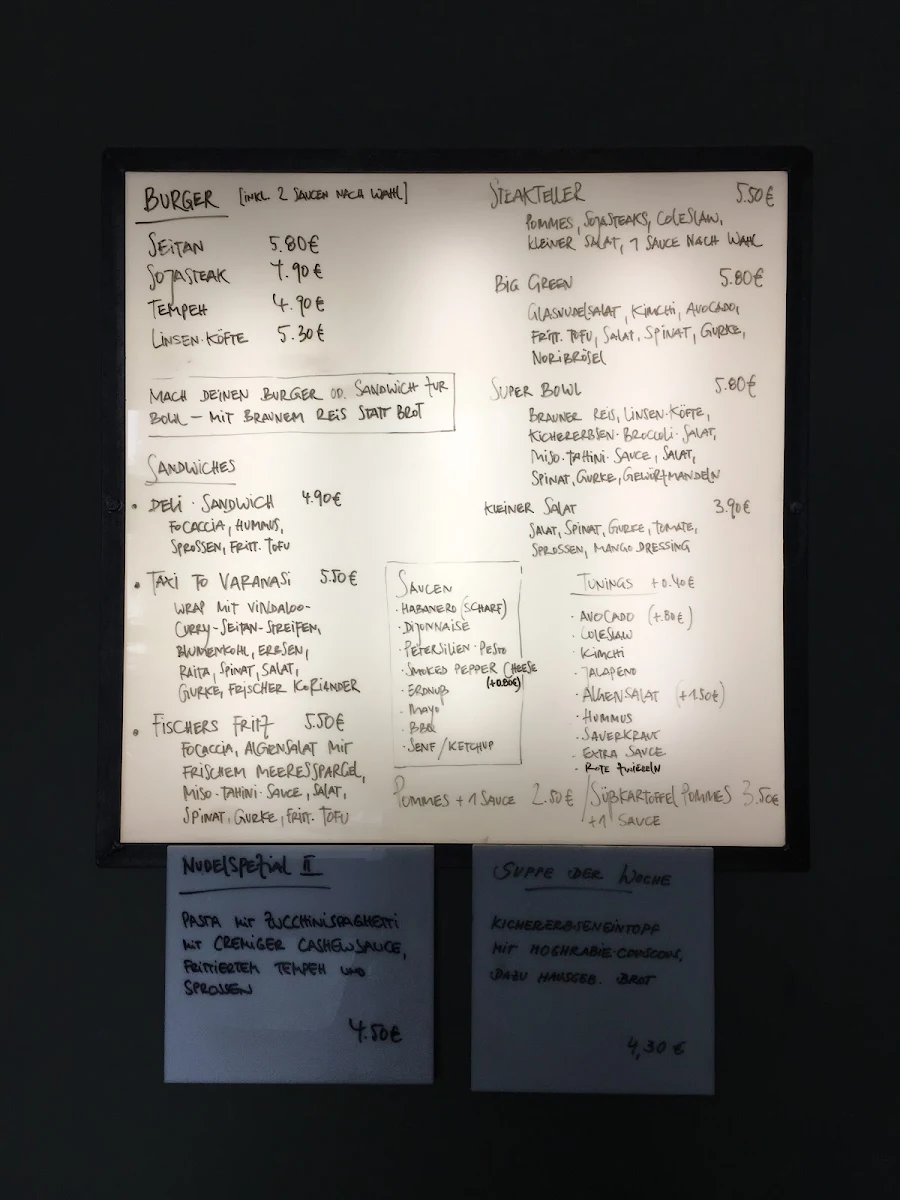 BURGER [INKL. 2 SAUCEN NACH WAHL]
SEITAN 5.80€
SOJASTEAK 4.90€
TEMPEH 4.90€
LINSEN·KÖFTE 5.30€
MACH DEINEN BURGER OD. SANDWICH ZUR
BOWL – MIT BRAUNEM REIS STATT BROT
SANDWICHES
· DELI·SANDWICH 4.90€
FOCACCIA, HUMMUS,
SPROSSEN, FRITT. TOFU
· TAXI TO VARANASI 5.50€
WRAP MIT VINDALOO-
CURRY-SEITAN-STREIFEN,
BLUMENKOHL, ERBSEN,
RAITA, SPINAT, SALAT,
GURKE, FRISCHER KORIANDER
· FISCHERS FRITZ 5.50€
FOCACCIA, ALGENSALAT MIT
FRISCHEM MEERESSPARGEL,
MISO·TAHINI·SAUCE, SALAT,
SPINAT, GURKE, FRITT. TOFU
STEAKTELLER 5.50€
POMMES, SOJASTEAKS, COLESLAW,
KLEINER SALAT, 1 SAUCE NACH WAHL
BIG GREEN 5.80€
GLASNUDELSALAT, KIMCHI, AVOCADO,
FRITT. TOFU, SALAT, SPINAT, GURKE,
NORIBRÖSEL
SUPER BOWL 5.80€
BRAUNER REIS, LINSEN·KÖFTE,
KICHERERBSEN·BROCCOLI·SALAT,
MISO·TAHINI·SAUCE, SALAT,
SPINAT, GURKE, GEWÜRZMANDELN
KLEINER SALAT 3.90€
SALAT, SPINAT, GURKE, TOMATE,
SPROSSEN, MANGO DRESSING
SAUCEN
· HABANERO (SCHARF)
· DIJONNAISE
· PETERSILIEN·PESTO
· SMOKED PEPPER CHEESE
(+0.80€)
· ERDNUß
· MAYO
· BBQ
· SENF/KETCHUP
TUNINGS +0.40€
· AVOCADO (+.80€)
· COLESLAW
· KIMCHI
· JALAPENO
· ALGENSALAT (+1.50€)
· HUMMUS
· SAUERKRAUT
· EXTRA SAUCE
· ROTE ZWIEBELN
POMMES + 1 SAUCE 2.50€ / SÜßKARTOFFEL POMMES 3.50€
+1 SAUCE
NUDELSPEZIAL II
PASTA MIT ZUCCHINISPAGHETTI
MIT CREMIGER CASHEWSAUCE,
FRITTIERTEM TEMPEH UND
SPROSSEN
4.50€
SUPPE DER WOCHE
KICHERERBSENEINTOPF
MIT MOGHRABIE-COUSCOUS,
DAZU HAUSGEB. BROT
4,30 €